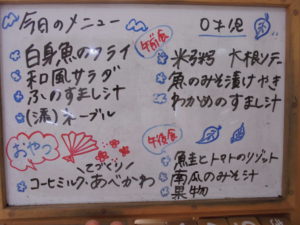 今日のメニュー
白身魚のフライ
和風サラダ
ふのすまし汁
(流)ネーブル
おやつ
てづくり
コーヒミルク・あべかわ
0才児
午前食
米粥 大根ソテー
魚のみそ漬けやき
わかめのすまし汁
午後食
鮭とトマトのリゾット
南瓜のみそ汁
果物